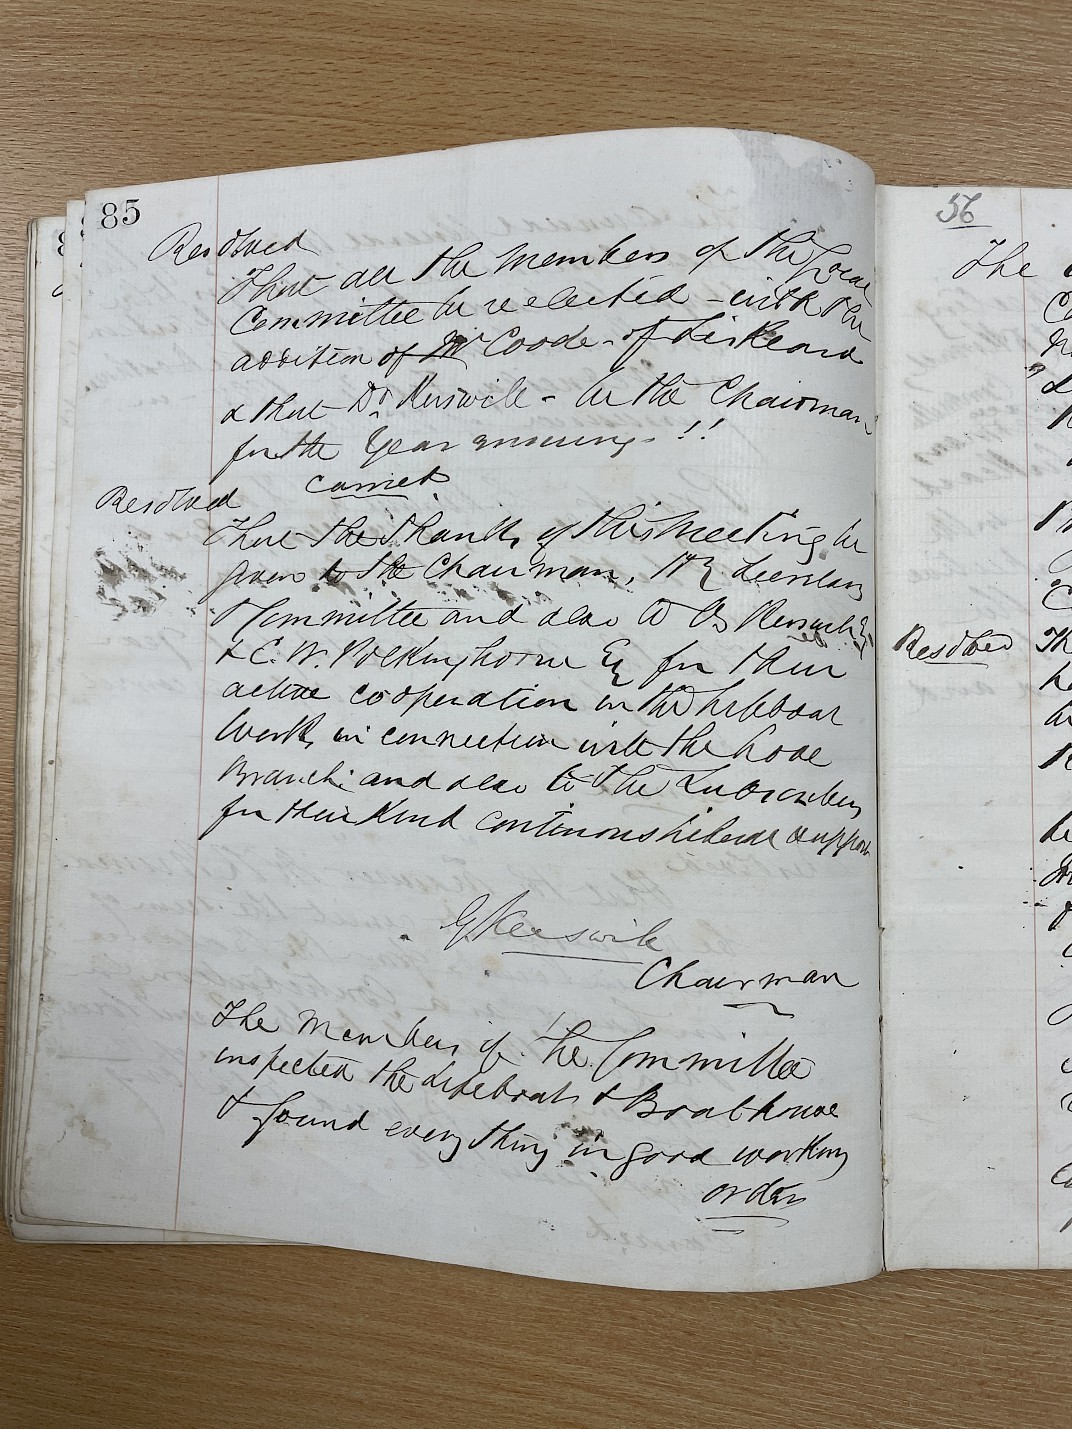 85
Resolved
That all the Members of the Local
Committee be reelected - with the
addition of Mr Coode - of Liskeard
& that Dr. Kerswill - be the Chairman
for the Year ensuing - !!
carried
Resolved
That the thanks of this Meeting be
given to the Chairman, Hy Secretary
& Committee and also to Kerswill
& C. W. Polkinghorne Esq for their
active cooperation in the
Work, in connection with the Looe
Branch: and also to the Subscribers
for their kind continous liberal support
G Kerswill
Chairman
The Members of the Committee
inspected the Lifeboat & Boathouse
& found everything in good working
order
56
The
Resolved